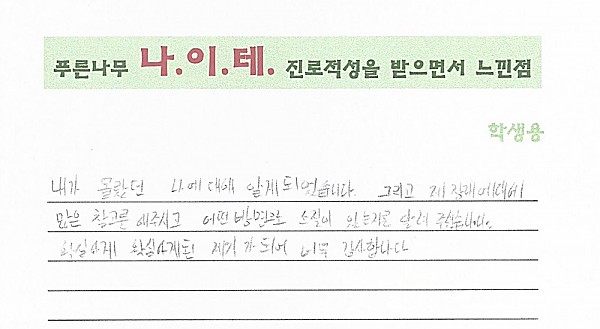 푸른나무 나.이.테. 진로적성을 받으면서 느낀점
학생용
내가 몰랐던 나에 대해 알게되었습니다. 그리고 제 장래에대해
많은 참고를 해주시고 어떤 방면으로 소질이 있는지를 알려 주셨습니다.
확실하게 계기가 되어 너무 감사합니다